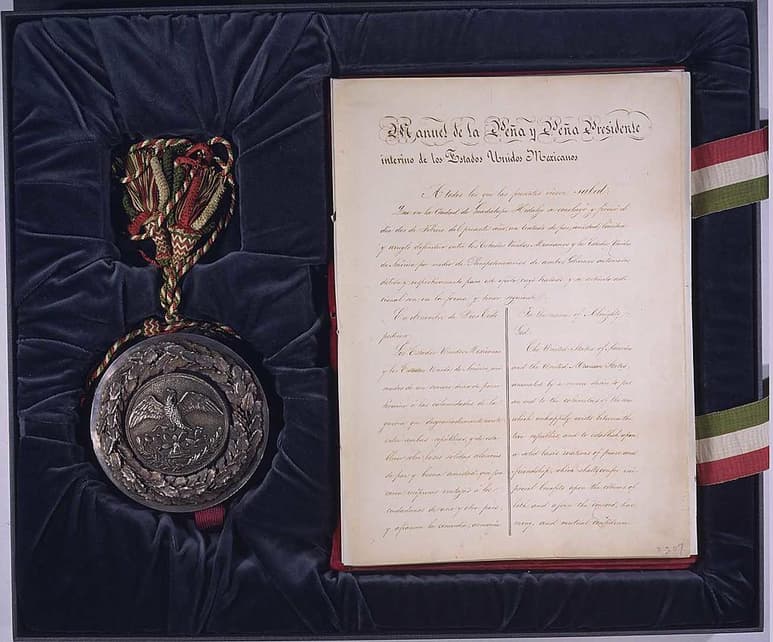 Manuel de la Peña y Peña Presidente
interino de los Estados Unidos Mexicanos
A todos los que las presentes vieren sabed:
Que en la Ciudad de Guadalupe Hidalgo se concluyó y firmó el
dia dos de Febrero del presente año, un tratado de paz, amistad, limites
y arreglo definitivo entre los Estados Unidos Mexicanos y los Estados Unidos
de America por medio de Plenipotenciarios de ambos Gobiernos autorizados
debida y respectivamente para este efecto, cuyo tratado y su articulo adi-
cional son en la forma y tenor siguiente.
En el nombre de Dios Todo
poderoso
Los Estados Unidos Mexicanos
y los Estados Unidos de America, ani-
mados de un sincero deseo de poner
termino a las calamidades de la
guerra que desgraciadamente existe
entre ambas repúblicas, y de esta-
blecer sobre bases solidas relaciones
de paz y buena amistad, que pro-
curen reciprocas ventajas a los
ciudadanos de uno y otro pais,
y afiancen la concordia, armonia
In the name of Almighty
God.
The United States of America
and the United Mexican States,
animated by a sincere desire to put
an end to the calamities of the war
which unhappily exists between the
two republics, and to establish upon
a solid basis relations of peace and
friendship, which shall confer reci-
procal benefits upon the citizens of
both and assure the concord, har-
mony, and mutual confidence